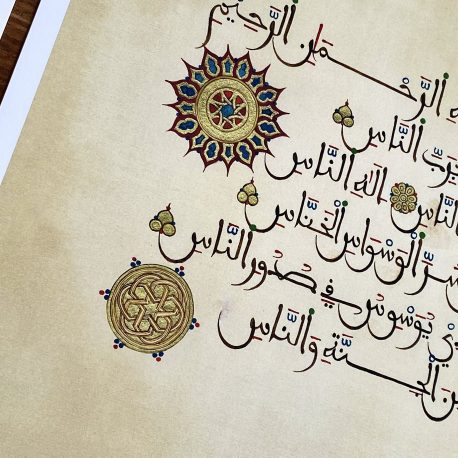 الرَّحْمَٰنِ الرَّحِيمِ
بِرَبِّ النَّاسِ
النَّاسِ إِلَٰهِ النَّاسِ
شَرِّ الْوَسْوَاسِ الْخَنَّاسِ
يُوَسْوِسُ فِي صُدُورِ النَّاسِ
الْجِنَّةِ وَالنَّاسِ